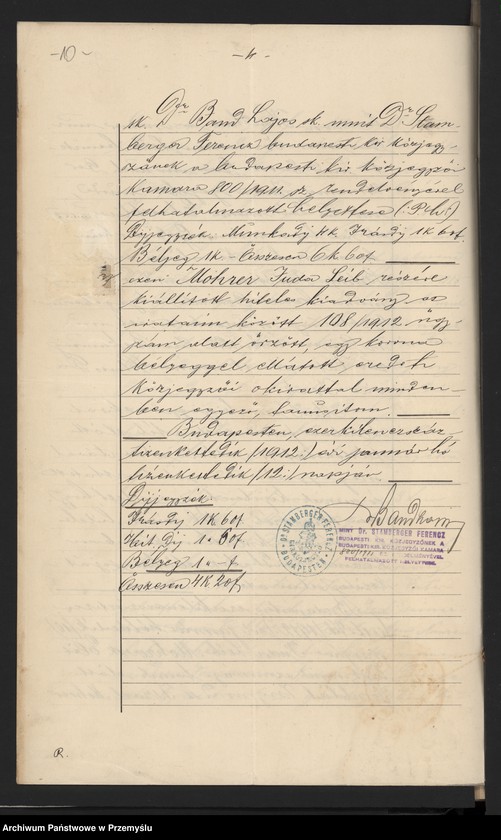 -10-
- 4 -
sk. Dr Band Lajos sk. mint Dr Stam-
berger Ferencz budapesti kir közjegy-
zőnek a budapesti kir közjegyzői
kamara 800/1911. sz. rendelvényével
felhatalmazott helyettese (:P.h.:)
Díjjegyzék: Munkadíj 4k Írásdíj 1k 60f.
Bélyeg 1k - Összesen 6k 60f
ezen Mohrer Juda Leib részére
kiállított hiteles kiadvány az
irataim között 108/1912 ügy-
szám alatt őrzött, egy korona
bélyeggel ellátott eredeti
közjegyzői okirattal minden-
ben egyező, tanusítom.
Budapesten, ezerkilenczszáz
tizenkettedik /1912:/ évi január hó
tizenkettedik /12:/ napján
Díjjegyzék:
Írásdíj 1K 60f
Hit. díj 1 „ 60f
Bélyeg 1 „ - f
Összesen 4K 20f
Dr STAMBERGER FERENCZ
BUDAPESTEN
MINT Dr. STAMBERGER FERENCZ
BUDAPESTI KIR. KÖZJEGYZŐNEK A
BUDAPESTI KIR. KÖZJEGYZŐI KAMARA
FELHATALMAZOTT HELYETTESE.
R.
Archiwum Państwowe w Przemyślu